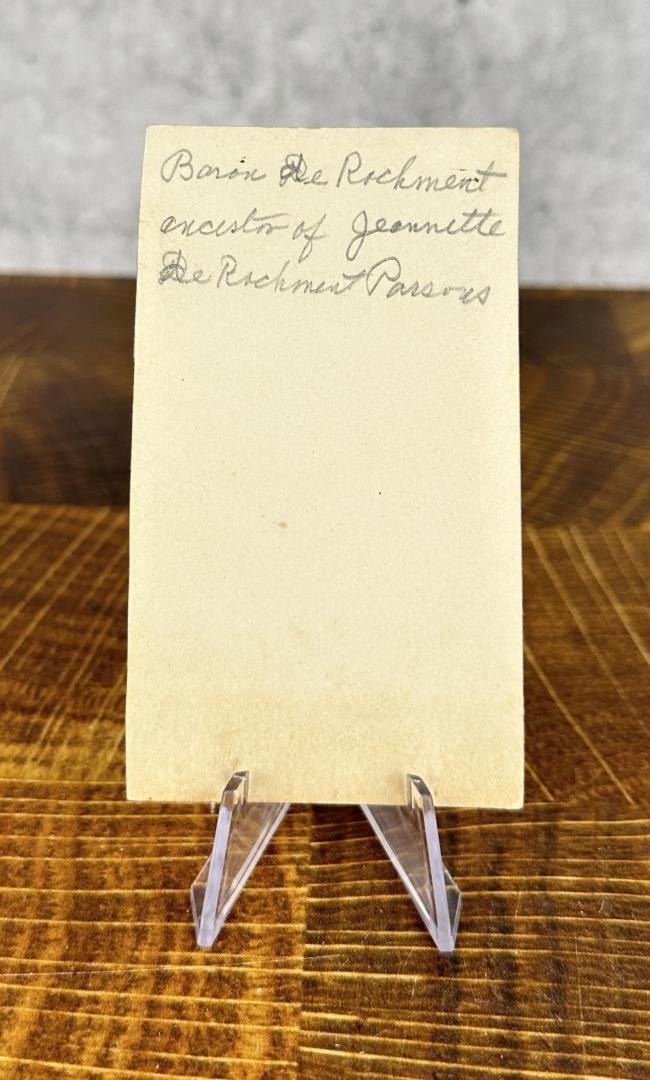 Baron De Rochment
ancestor of Jeannette
De Rochment Parsons